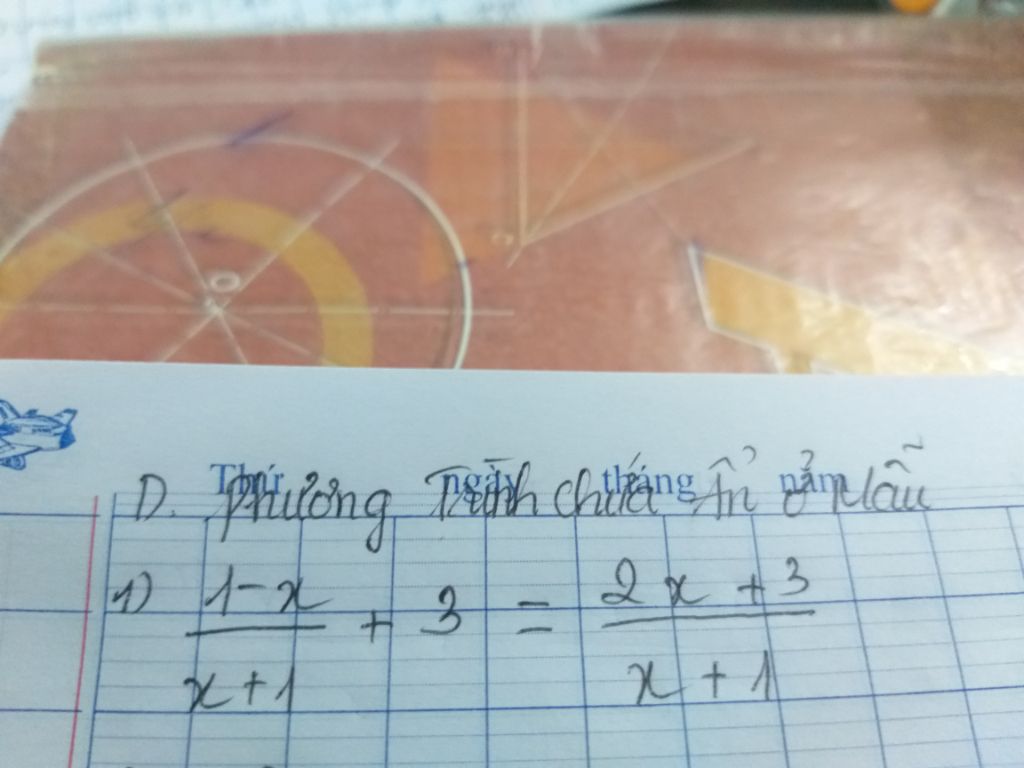 Thứ ngày tháng năm
D. Phương Trình chứa Ẩn ở Mẫu
1) \frac{1-x}{x+1} + 3 = \frac{2x+3}{x+1}